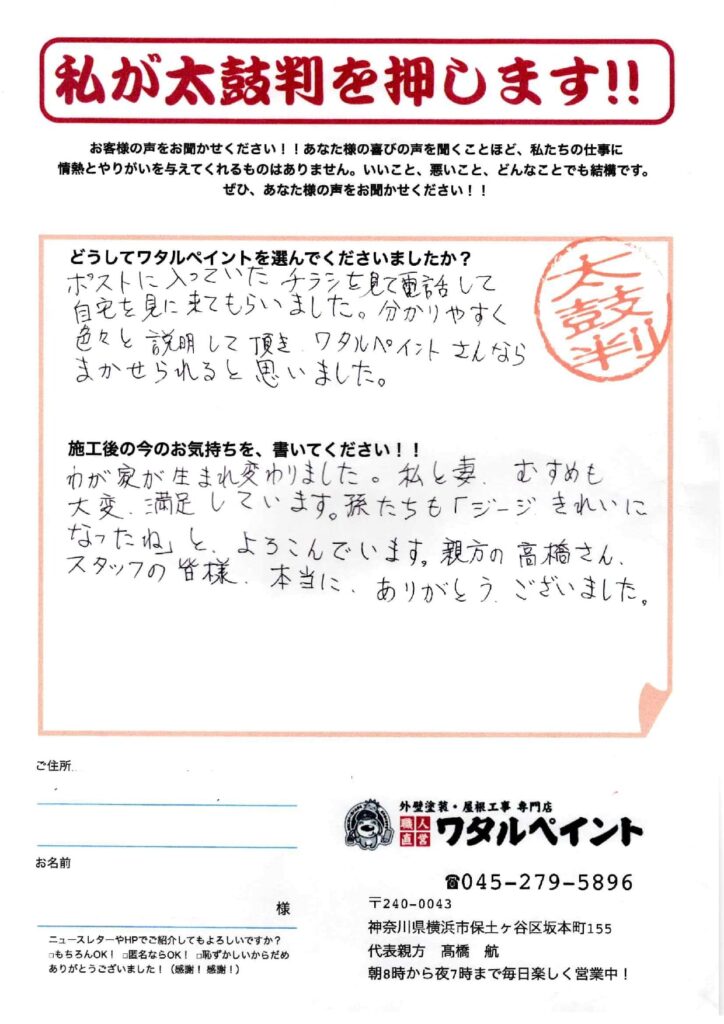 私が太鼓判を押します!!
お客様の声をお聞かせください！！あなた様の喜びの声を聞くことほど、私たちの仕事に
情熱とやりがいを与えてくれるものはありません。いいこと、悪いこと、どんなことでも結構です。
ぜひ、あなた様の声をお聞かせください！！
どうしてワタルペイントを選んでくださいましたか？
ポストに入っていたチラシを見て電話して
自宅を見に来てもらいました。分かりやすく
色々と説明して頂き、ワタルペイントさんなら
まかせられると思いました。
太鼓判
施工後の今のお気持ちを、書いてください！！
わが家が生まれ変わりました。私と妻、むすめも
大変、満足しています。孫たちも「ジージきれいに
なったね」と、よろこんでいます。親方の高橋さん、
スタッフの皆様、本当に、ありがとうございました。
ご住所
お名前
様
ニュースレターやHPでご紹介してもよろしいですか？
□もちろんOK！ □匿名ならOK！ □恥ずかしいからだめ
ありがとうございました！（感謝！感謝！）
外壁塗装・屋根工事 専門店
職人直営 ワタルペイント
☎045-279-5896
〒240-0043
神奈川県横浜市保土ヶ谷区坂本町155
代表親方 髙橋 航
朝8時から夜7時まで毎日楽しく営業中！